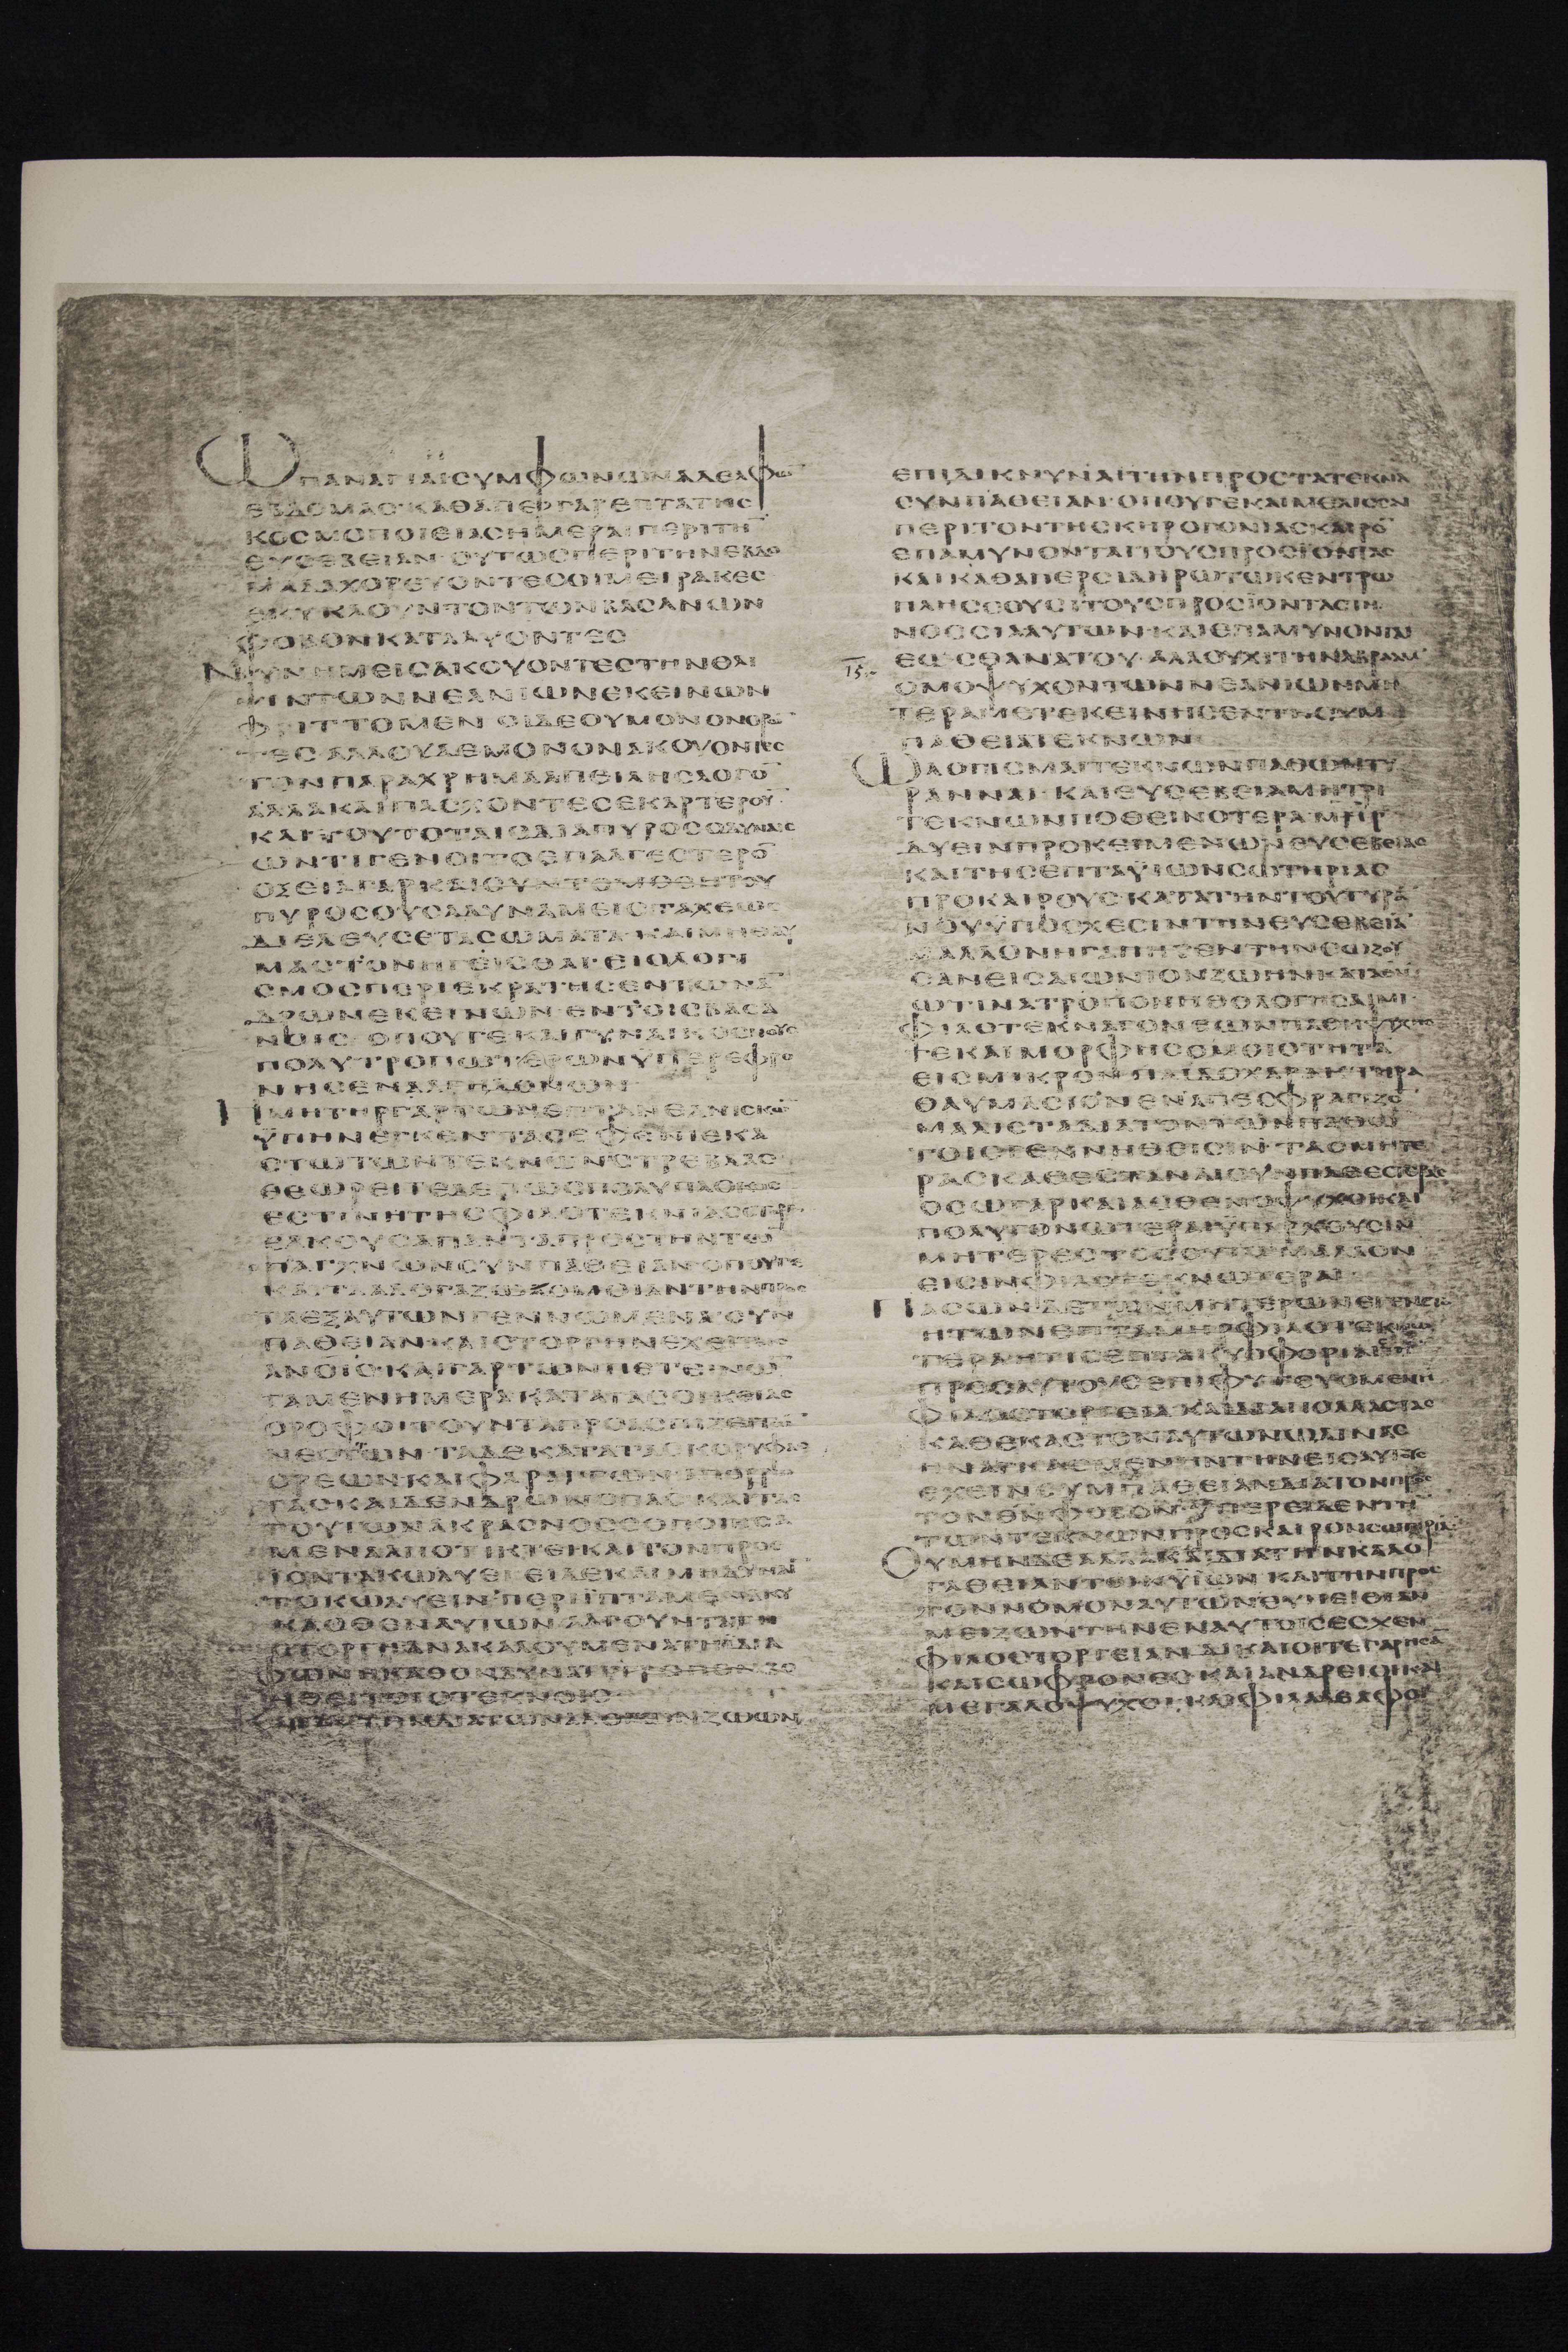 ΩΠΑΝΑΓΙΑΪϹΥΜΦΩΝΩΝΑΔΕΛΦΩ̄
ΕΒΔΟΜΑϹ·ΚΑΘΑΠΕΡΓΑΡΕΠΤΑΤΗϹ
ΚΟϹΜΟΠΟΙΕΙΑϹΗΜΕΡΑΙΠΕΡΙΤΗ̄
ΕΥϹΕΒΕΙΑΝ·ΟΥΤΩϹΠΕΡΙΤΗΝΕΒΔΟ
ΜΑΔΑΧΟΡΕΥΟΝΤΕϹΟΙΜΕΙΡΑΚΕϹ
ΕΚΥΚΛΟΥΝΤΟΝΤΩΝΒΑϹΑΝΩΝ
ΦΟΒΟΝΚΑΤΑΛΥΟΝΤΕϹ
ΝΥΝΗΜΕΙϹΑΚΟΥΟΝΤΕϹΤΗΝΘΛΙ
ΨΙΝΤΩΝΝΕΑΝΙΩΝΕΚΕΙΝΩΝ
ΦΡΙΤΤΟΜΕΝ·ΟΙΔΕΟΥΜΟΝΟΝΟΡΩ̄
ΤΕϹΑΛΛΟΥΔΕΜΟΝΟΝΑΚΟΥΟΝΤΕϹ
ΤΟΝΠΑΡΑΧΡΗΜΑΑΠΕΙΛΗϹΛΟΓΟ̄
ΑΛΛΑΚΑΙΠΑϹΧΟΝΤΕϹΕΚΑΡΤΕΡΟῩ·
ΚΑΙΤΟΥΤΟΤΑΙϹΔΙΑΠΥΡΟϹΟΔΥΝΑΙϹ
ΩΝΤΙΓΕΝΟΙΤΟΕΠΑΛΓΕϹΤΕΡΟ̄
ΟΞΕΙΑΓΑΡΚΑΙΟΥΝΤΟΜΟϹΗΤΟΥ
ΠΥΡΟϹΟΥϹΑΔΥΝΑΜΕΙϹΤΑΧΕΩϹ
ΔΙΕΛΕΥϹΕΤΑϹΩΜΑΤΑ·ΚΑΙΜΗΘΑΥ
ΜΑϹΤΟΝΗΓΕΙϹΘΑΙ·ΕΙΟΛΟΓΙ
ϹΜΟϹΠΕΡΙΕΚΡΑΤΗϹΕΝΤΩΝᾹ
ΔΡΩΝΕΚΕΙΝΩΝ·ΕΝΤΟΙϹΒΑϹΑ
ΝΟΙϹ·ΟΠΟΥΓΕΚΑΙΓΥΝΑΙΚΟϹΝΟΥϹ
ΠΟΛΥΤΡΟΠΩΤΕΡΩΝΫΠΕΡΕΦΡΟ
ΝΗϹΕΝΑΛΓΗΔΟΝΩΝ
ΗΜΗΤΗΡΓΑΡΤΩΝΕΠΤΑΝΕΑΝΙϹΚΩ̄
ΫΠΗΝΕΓΚΕΝΤΑϹΕΦΕΝΙΕΚΑ
ϹΤΩΤΩΝΤΕΚΝΩΝϹΤΡΕΒΛΑϹ·
ΘΕΩΡΕΙΤΕΔΕΠΩϹΠΟΛΥΠΛΟΚΟϹ
ΕϹΤΙΝΗΤΗϹΦΙΛΟΤΕΚΝΙΑϹϹΤΟΡΓΗ
ΕΛΚΟΥϹΑΠΑΝΤΑΠΡΟϹΤΗΝΤΩ̄
ϹΠΛΓΧΝΩΝϹΥΝΠΑΘΕΙΑΝ·ΟΠΟΥΓΕ
ΚΑΙΤΑΑΛΟΓΑΖΩΑΟΜΟΙΑΝΤΗΝΠΡΟϹ
ΤΑΕΞΑΥΤΩΝΓΕΝΝΩΜΕΝΑϹΥΝ
ΠΑΘΕΙΑΝΚΑΙϹΤΟΡΓΗΝΕΧΕΙΤΟΙϹ
ΑΝΟΙϹ·ΚΑΙΓΑΡΤΩΝΠΕΤΕΙΝΩ̄
ΤΑΜΕΝΗΜΕΡΑΚΑΤΑΤΑϹΟΙΚΕΙΑϹ
ΟΡΟΦΟΙΤΟΥΝΤΑΠΡΟΑϹΠΙΖΕΙΤΩ̄
ΝΕΟΤΤΩΝ·ΤΑΔΕΚΑΤΑΤΑϹΚΟΡΥΦΑϹ
ΟΡΕΩΝΚΑΙΦΑΡΑΓΓΩΝΑΠΟΡΡΩ
ΓΑϹΚΑΙΔΕΝΔΡΩΝΟΠΑϹ·ΚΑΙΤΑϹ
ΤΟΥΤΩΝΑΚΡΑϹΝΟϹϹΟΠΟΙΗϹΑ
ΜΕΝΑΑΠΟΤΙΚΤΕΙ·ΚΑΙΤΟΝΠΡΟϹ
ΪΟΝΤΑΚΩΛΥΕΙ·ΕΙΔΕΚΑΙΜΗΔΥΝΑῙ
ΤΟΚΩΛΥΕΙΝ·ΠΕΡΙΪΠΤΑΜΕΝΑΚΥ
ΚΛΟΘΕΝΑΥΤΩΝΑΛΓΟΥΝΤΑΤΗ
ϹΤΟΡΓΗΑΝΑΚΑΛΟΥΜΕΝΑΤΗΙΔΙΑ
ΦΩΝΗΚΑΘΟΝΔΥΝΑΤΑΙΤΡΟΠΟΝΒΟ
ΗΘΕΙΤΟΙϹΤΕΚΝΟΙϹ
ΚΑΙΤΙΔΕΙΤΗΝΔΙΑΤΩΝΑΛΟΓΩΝΖΩΩΝ
ΕΠΙΔΙΚΝΥΝΑΙΤΗΝΠΡΟϹΤΑΤΕΚΝΑ
ϹΥΝΠΑΘΕΙΑΝ·ΟΠΟΥΓΕΚΑΙΜΕΛΙϹϹΑΙ
ΠΕΡΙΤΟΝΤΗϹΚΗΡΟΓΟΝΙΑϹΚΑΙΡΟ̄
ΕΠΑΜΥΝΟΝΤΑΙΤΟΥϹΠΡΟϹΪΟΝΤΑϹ
ΚΑΙΚΑΘΑΠΕΡϹΙΔΗΡΩΤΩΚΕΝΤΡΩ
ΠΛΗϹϹΟΥϹΙΤΟΥϹΠΡΟϹΪΟΝΤΑϹΤΗ
ΝΟϹϹΙΑΑΥΤΩΝ·ΚΑΙΕΠΑΜΥΝΟΝΤΑΙ
ΕΩϹΘΑΝΑΤΟΥ·ΑΛΛΟΥΧΙΤΗΝΑΒΡΑΑΜ
ΟΜΟΨΥΧΟΝΤΩΝΝΕΑΝΙΩΝΜΗ
ΤΕΡΑΜΕΤΕΚΕΙΝΗϹΕΝΤΗϹΥΜ
ΠΑΘΕΙΑΤΕΚΝΩΝ
ΩΛΟΓΙϹΜΑΙΤΕΚΝΩΝΠΑΘΩΝΤΥ
ΡΑΝΝΑΙ·ΚΑΙΕΥϹΕΒΕΙΑΜΗΤΡΙ
ΤΕΚΝΩΝΠΟΘΕΙΝΟΤΕΡΑΜΗΡ
ΔΥΕΙΝΠΡΟΚΕΙΜΕΝΩΝΕΥϹΕΒΕΙΑϹ
ΚΑΙΤΗϹΕΠΤΑΫΙΩΝϹΩΤΗΡΙΑϹ
ΠΡΟΚΑΙΡΟΥϹΚΑΤΑΤΗΝΤΟΥΤΥΡᾹ
ΝΟΥΫΠΟϹΧΕϹΙΝΤΗΝΕΥϹΕΒΕΙᾹ
ΜΑΛΛΟΝΗΓΑΠΗϹΕΝΤΗΝϹΩΖΟΥ
ϹΑΝΕΙϹΑΙΩΝΙΟΝΖΩΗΝΚΑΤΑΘΝ̄
ΩΤΙΝΑΤΡΟΠΟΝΗΘΟΛΟΓΗϹΑΙΜΙ
ΦΙΛΟΤΕΚΝΑΓΟΝΕΩΝΠΑΘΗΨΥΧΗϹ
ΤΕΚΑΙΜΟΡΦΗϹΟΜΟΙΟΤΗΤΑ
ΕΙϹΜΙΚΡΟΝΠΑΙΔΟϹΧΑΡΑΚΤΗΡΑ
ΘΑΥΜΑϹΙΟΝΕΝΑΠΕϹΦΡΑΓΙΖΟ̄
ΜΑΛΙϹΤΑΔΙΑΤΟΝΤΩΝΠΑΘΩ̄
ΤΟΙϹΓΕΝΝΗΘΕΙϹΙΝ·ΤΑϹΜΗΤΕ
ΡΑϹΚΑΘΕϹΤΑΝΑΙϹΥΝΠΑΘΕϹΤΕΡΑϹ
ΟϹΩΓΑΡΚΑΙΑϹΘΕΝΟΨΥΧΟΙΚΑΙ
ΠΟΛΥΓΟΝΩΤΕΡΑΙΫΠΑΡΧΟΥϹΙΝ
ΜΗΤΕΡΕϹΤΟϹΟΥΤΩΜΑΛΛΟΝ
ΕΙϹΙΝΦΙΛΟΤΕΚΝΩΤΕΡΑΙ
ΠΑϹΩΝΔΕΤΩΝΜΗΤΕΡΩΝΕΓΕΝΕΤΟ
ΗΤΩΝΕΠΤΑΜΗΡΦΙΛΟΤΕΚΝΩ
ΤΕΡΑ·ΗΤΙϹΕΠΤΑΚΥΟΦΟΡΙΑΙϹΤΗ̄
ΠΡΟϹΑΥΤΟΥϹΕΠΙΦΥΤΕΥΟΜΕΝΗ
ΦΙΛΟϹΤΟΡΓΕΙΑ·ΚΑΙΔΙΑΠΟΛΛΑϹΤΑϹ
ΚΑΘΕΚΑϹΤΟΝΑΥΤΩΝΩΔΙΝΑϹ
ΗΝΑΓΚΑϹΜΕΝΗΝΤΗΝΕΙϹΑΥΤΟΥϹ
ΕΧΕΙΝϹΥΜΠΑΘΕΙΑΝΔΙΑΤΟΝΠΡΟϹ
ΤΟΝΘ̄Ν̄ΦΟΒΟΝΫΠΕΡΕΙΔΕΝΤΗ̄
ΤΩΝΤΕΚΝΩΝΠΡΟϹΚΑΙΡΟΝϹΩΤΗΡΙᾹ
ΟΥΜΗΝΔΕΑΛΛΑΚΑΙΔΙΑΤΗΝΚΑΛΟ
ΓΑΘΕΙΑΝΤΩΝΫΪΩΝ·ΚΑΙΤΗΝΠΡΟϹ
ΤΟΝΝΟΜΟΝΑΥΤΩΝΕΥΠΕΙΘΙΑΝ
ΜΕΙΖΩΝΤΗΝΕΝΑΥΤΟΙϹΕϹΧΕΝ
ΦΙΛΟϹΤΟΡΓΕΙΑΝ·ΔΙΚΑΙΟΙΤΕΓΑΡΗϹᾹ
ΚΑΙϹΩΦΡΟΝΕϹΚΑΙΑΝΔΡΕΙΟΙΚΑΙ
ΜΕΓΑΛΟΨΥΧΟΙ·ΚΑΙΦΙΛΑΔΕΛΦΟΙ